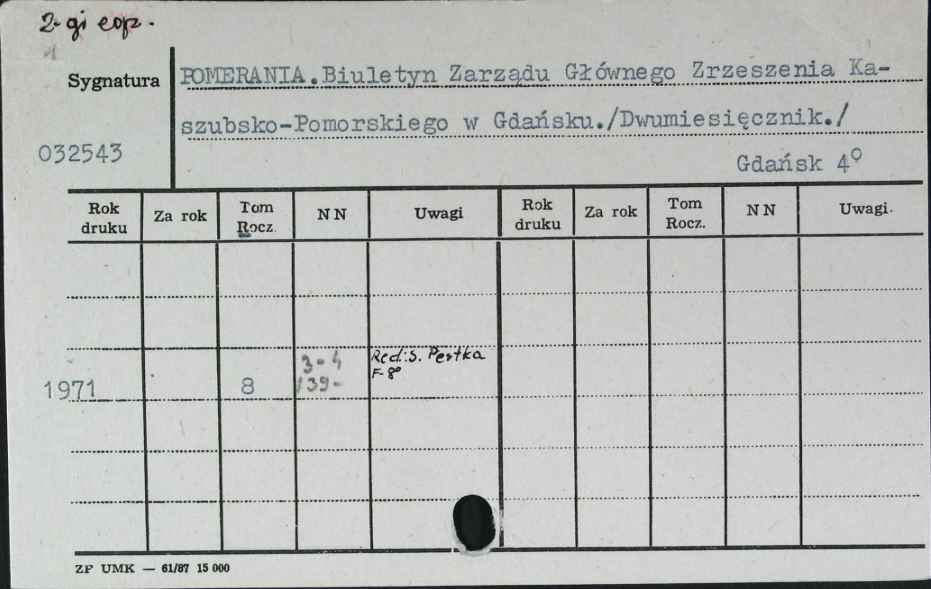 2-gi egz.
Sygnatura
POMERANIA.Biuletyn Zarządu Głównego Zrzeszenia Ka-
szubsko-Pomorskiego w Gdańsku./Dwumiesięcznik./
032543
Gdańsk 4°
Rok druku Za rok Tom Rocz. NN Uwagi Rok druku Za rok Tom Rocz. NN Uwagi.
1971 8 3-4 /39- Red: S. Pestka
F-8°
ZP UMK — 61/87 15 000